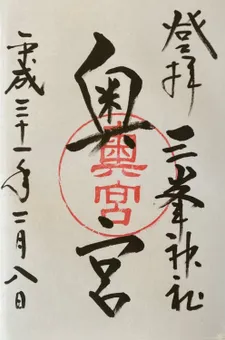 登拝
三峯神社
奥宮
奥宮
平成三十一年三月八日